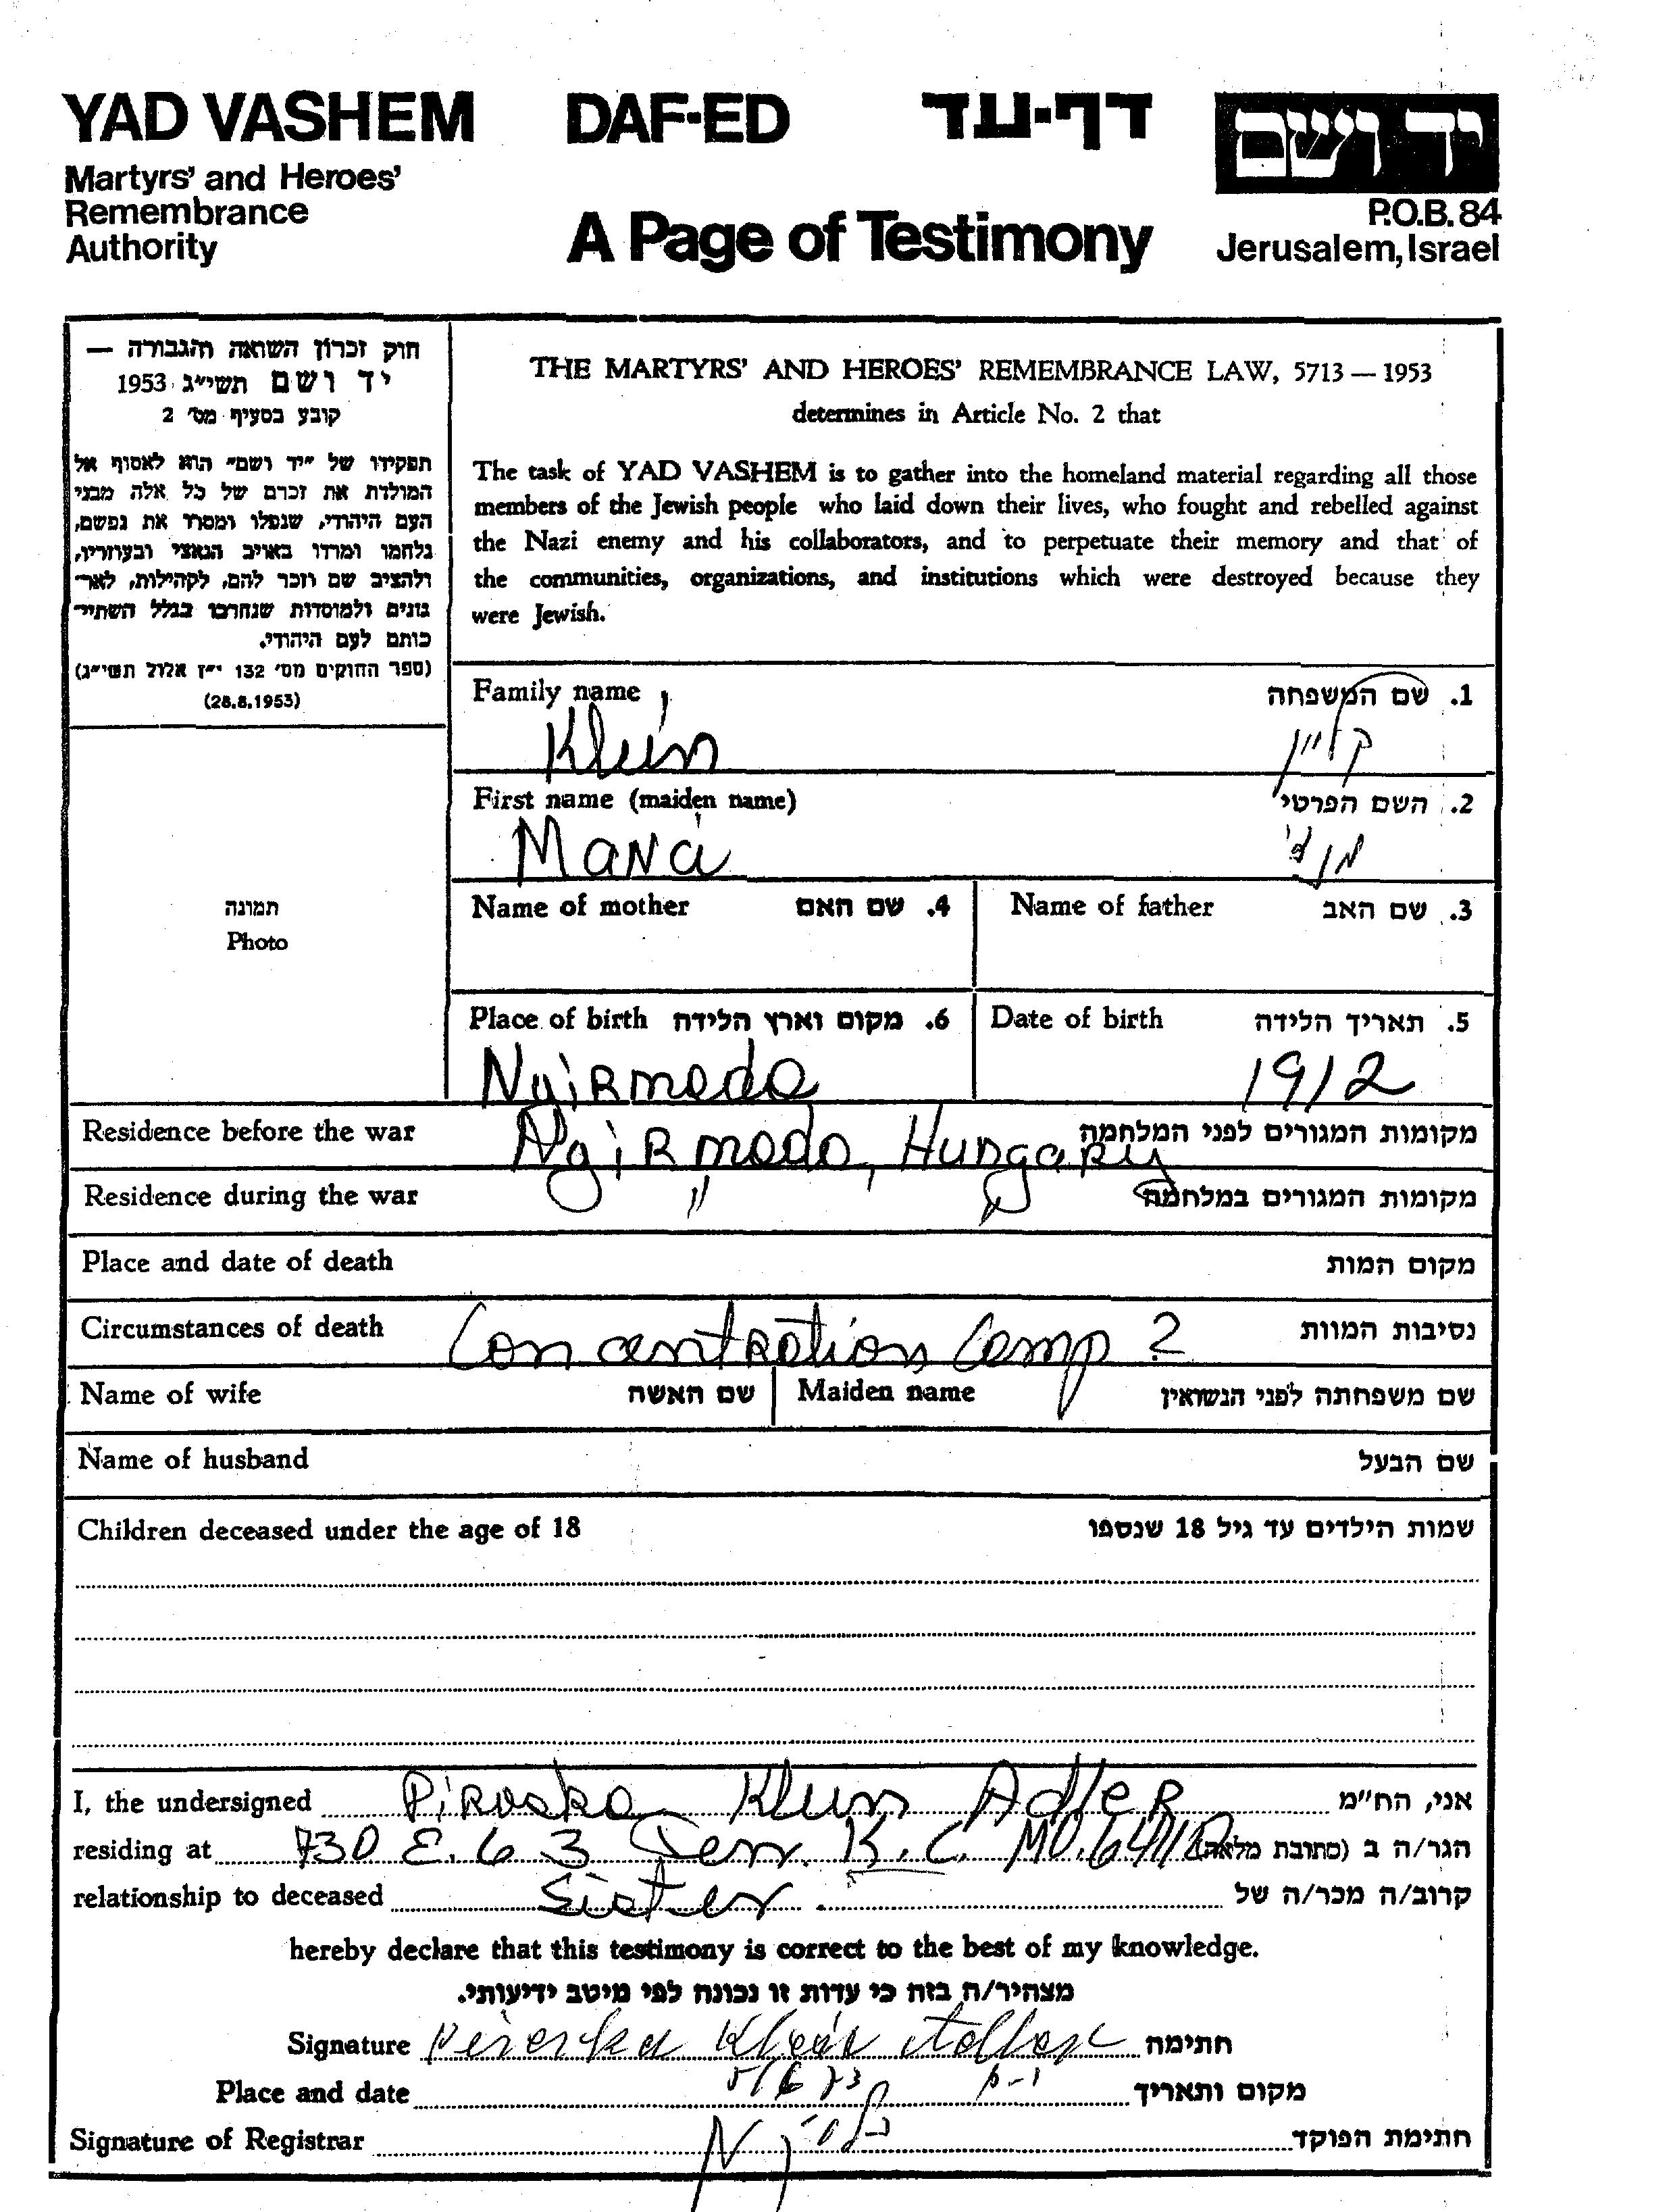 YAD VASHEM DAF-ED דף-עד יד ושם
Martyrs' and Heroes'
Remembrance
Authority
A Page of Testimony
P.O.B. 84
Jerusalem, Israel
חוק זכרון השואה והגבורה —
יד ושם תשי״ג 1953
קובע בסעיף מס׳ 2
תפקידו של ״יד ושם״ הוא לאסוף אל
המולדת את זכרם של כל אלה מבני
העם היהודי, שנפלו ומסרו את נפשם,
נלחמו ומרדו באויב הנאצי ובעוזריו,
ולהציב שם וזכר להם, לקהילות, לאר־
גונים ולמוסדות שנחרבו בגלל השתיי־
כותם לעם היהודי.
(ספר החוקים מס׳ 132 י״ז אלול תשי״ג)
(28.8.1953)
THE MARTYRS' AND HEROES' REMEMBRANCE LAW, 5713 — 1953
determines in Article No. 2 that
The task of YAD VASHEM is to gather into the homeland material regarding all those
members of the Jewish people who laid down their lives, who fought and rebelled against
the Nazi enemy and his collaborators, and to perpetuate their memory and that of
the communities, organizations, and institutions which were destroyed because they
were Jewish.
Family name 1. שם המשפחה
Klein קליין
First name (maiden name) 2. השם הפרטי
Mana
תמונה
Photo
Name of mother 4. שם האם Name of father 3. שם האב
Place of birth 6. מקום וארץ הלידה Date of birth 5. תאריך הלידה
Ngirmada 1912
Residence before the war Ngirmada, Hungary מקומות המגורים לפני המלחמה
Residence during the war " מקומות המגורים במלחמה
Place and date of death מקום המות
Circumstances of death Concentration Camp ? נסיבות המוות
Name of wife שם האשה Maiden name שם משפחתה לפני הנשואין
Name of husband שם הבעל
Children deceased under the age of 18 שמות הילדים עד גיל 18 שנספו
I, the undersigned Piroska Klein Adler אני, הח״מ
residing at 730 E. 63 Terr. K.C. MO. 64110 הגר/ה ב (כתובת מלאה)
relationship to deceased Sister קרוב/ה מכר/ה של
hereby declare that this testimony is correct to the best of my knowledge.
מצהיר/ה בזה כי עדות זו נכונה לפי מיטב ידיעותי.
Signature Piroska Klein Adler חתימה
Place and date מקום ותאריך
Signature of Registrar חתימת הפוקד